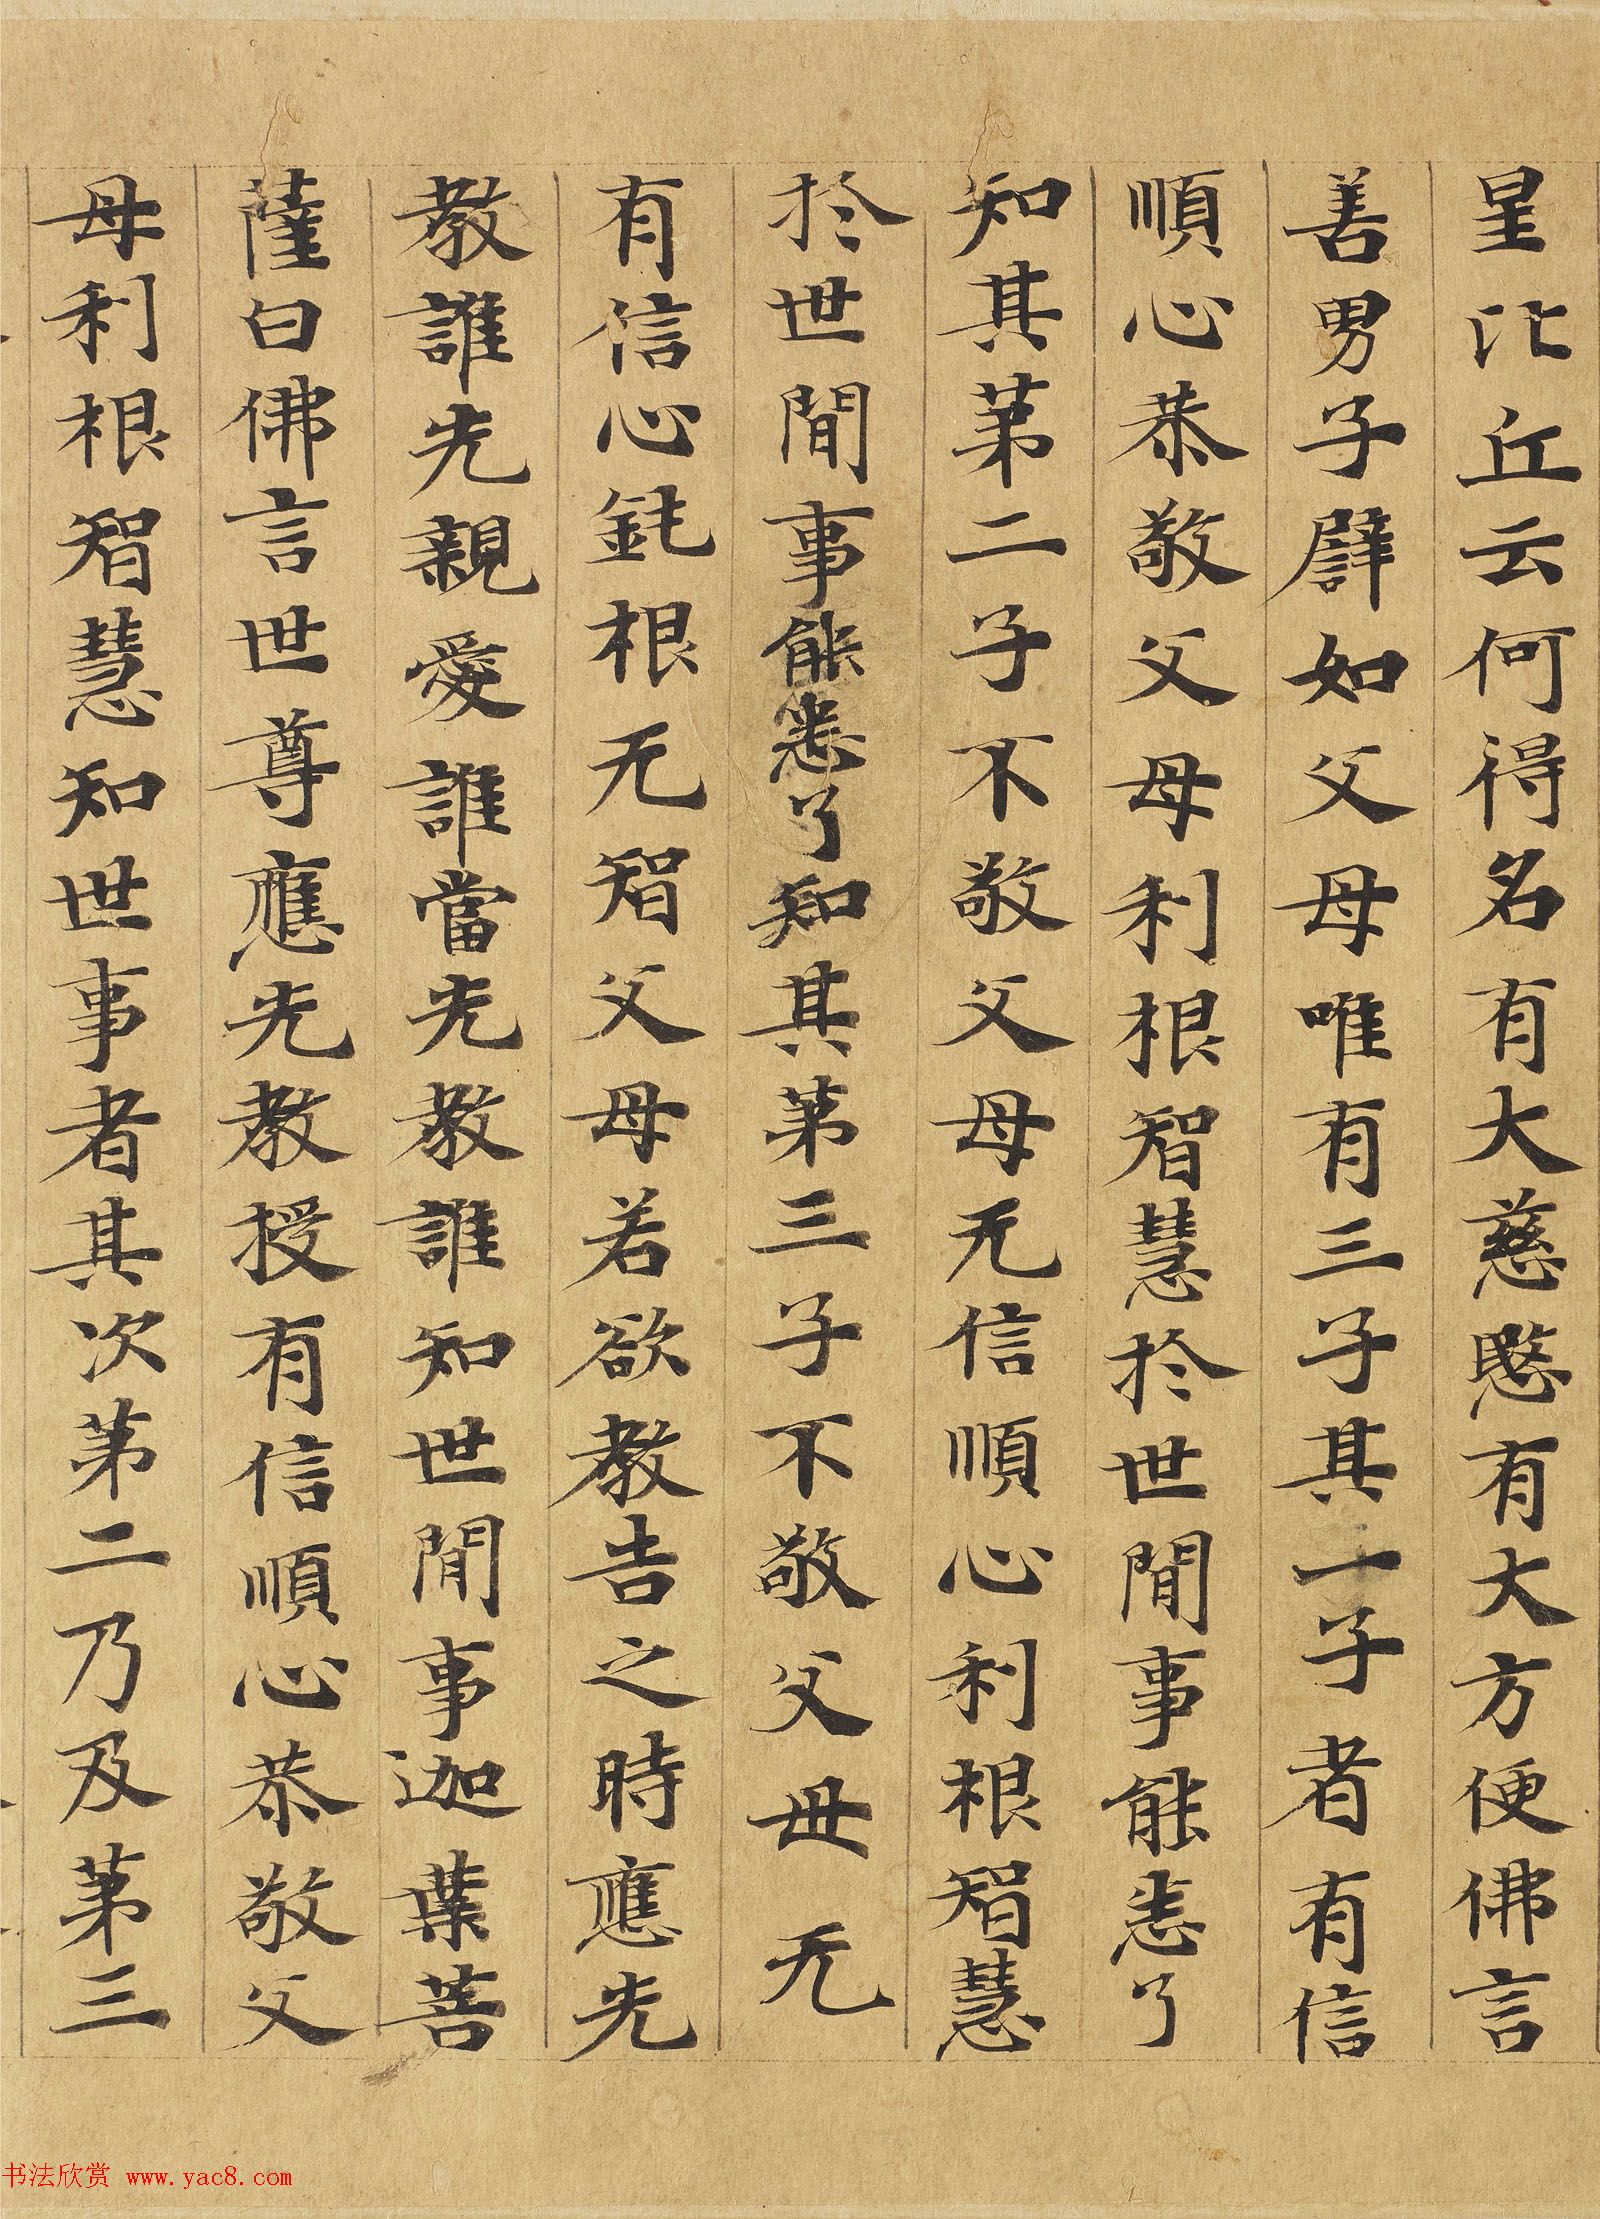 星比丘云何得名有大慈愍有大方便佛言
善男子譬如父母唯有三子其一子者有信
順心恭敬父母利根智慧於世間事能悉了
知其第二子不敬父母无信順心利根智慧
於世間事能悉了知其第三子不敬父母无
有信心鈍根无智父母若欲教告之時應先
教誰先親愛誰當先教誰知世間事迦葉菩
薩白佛言世尊應先教授有信順心恭敬父
母利根智慧知世事者其次第二乃及第三
书法欣赏 www.yac8.com